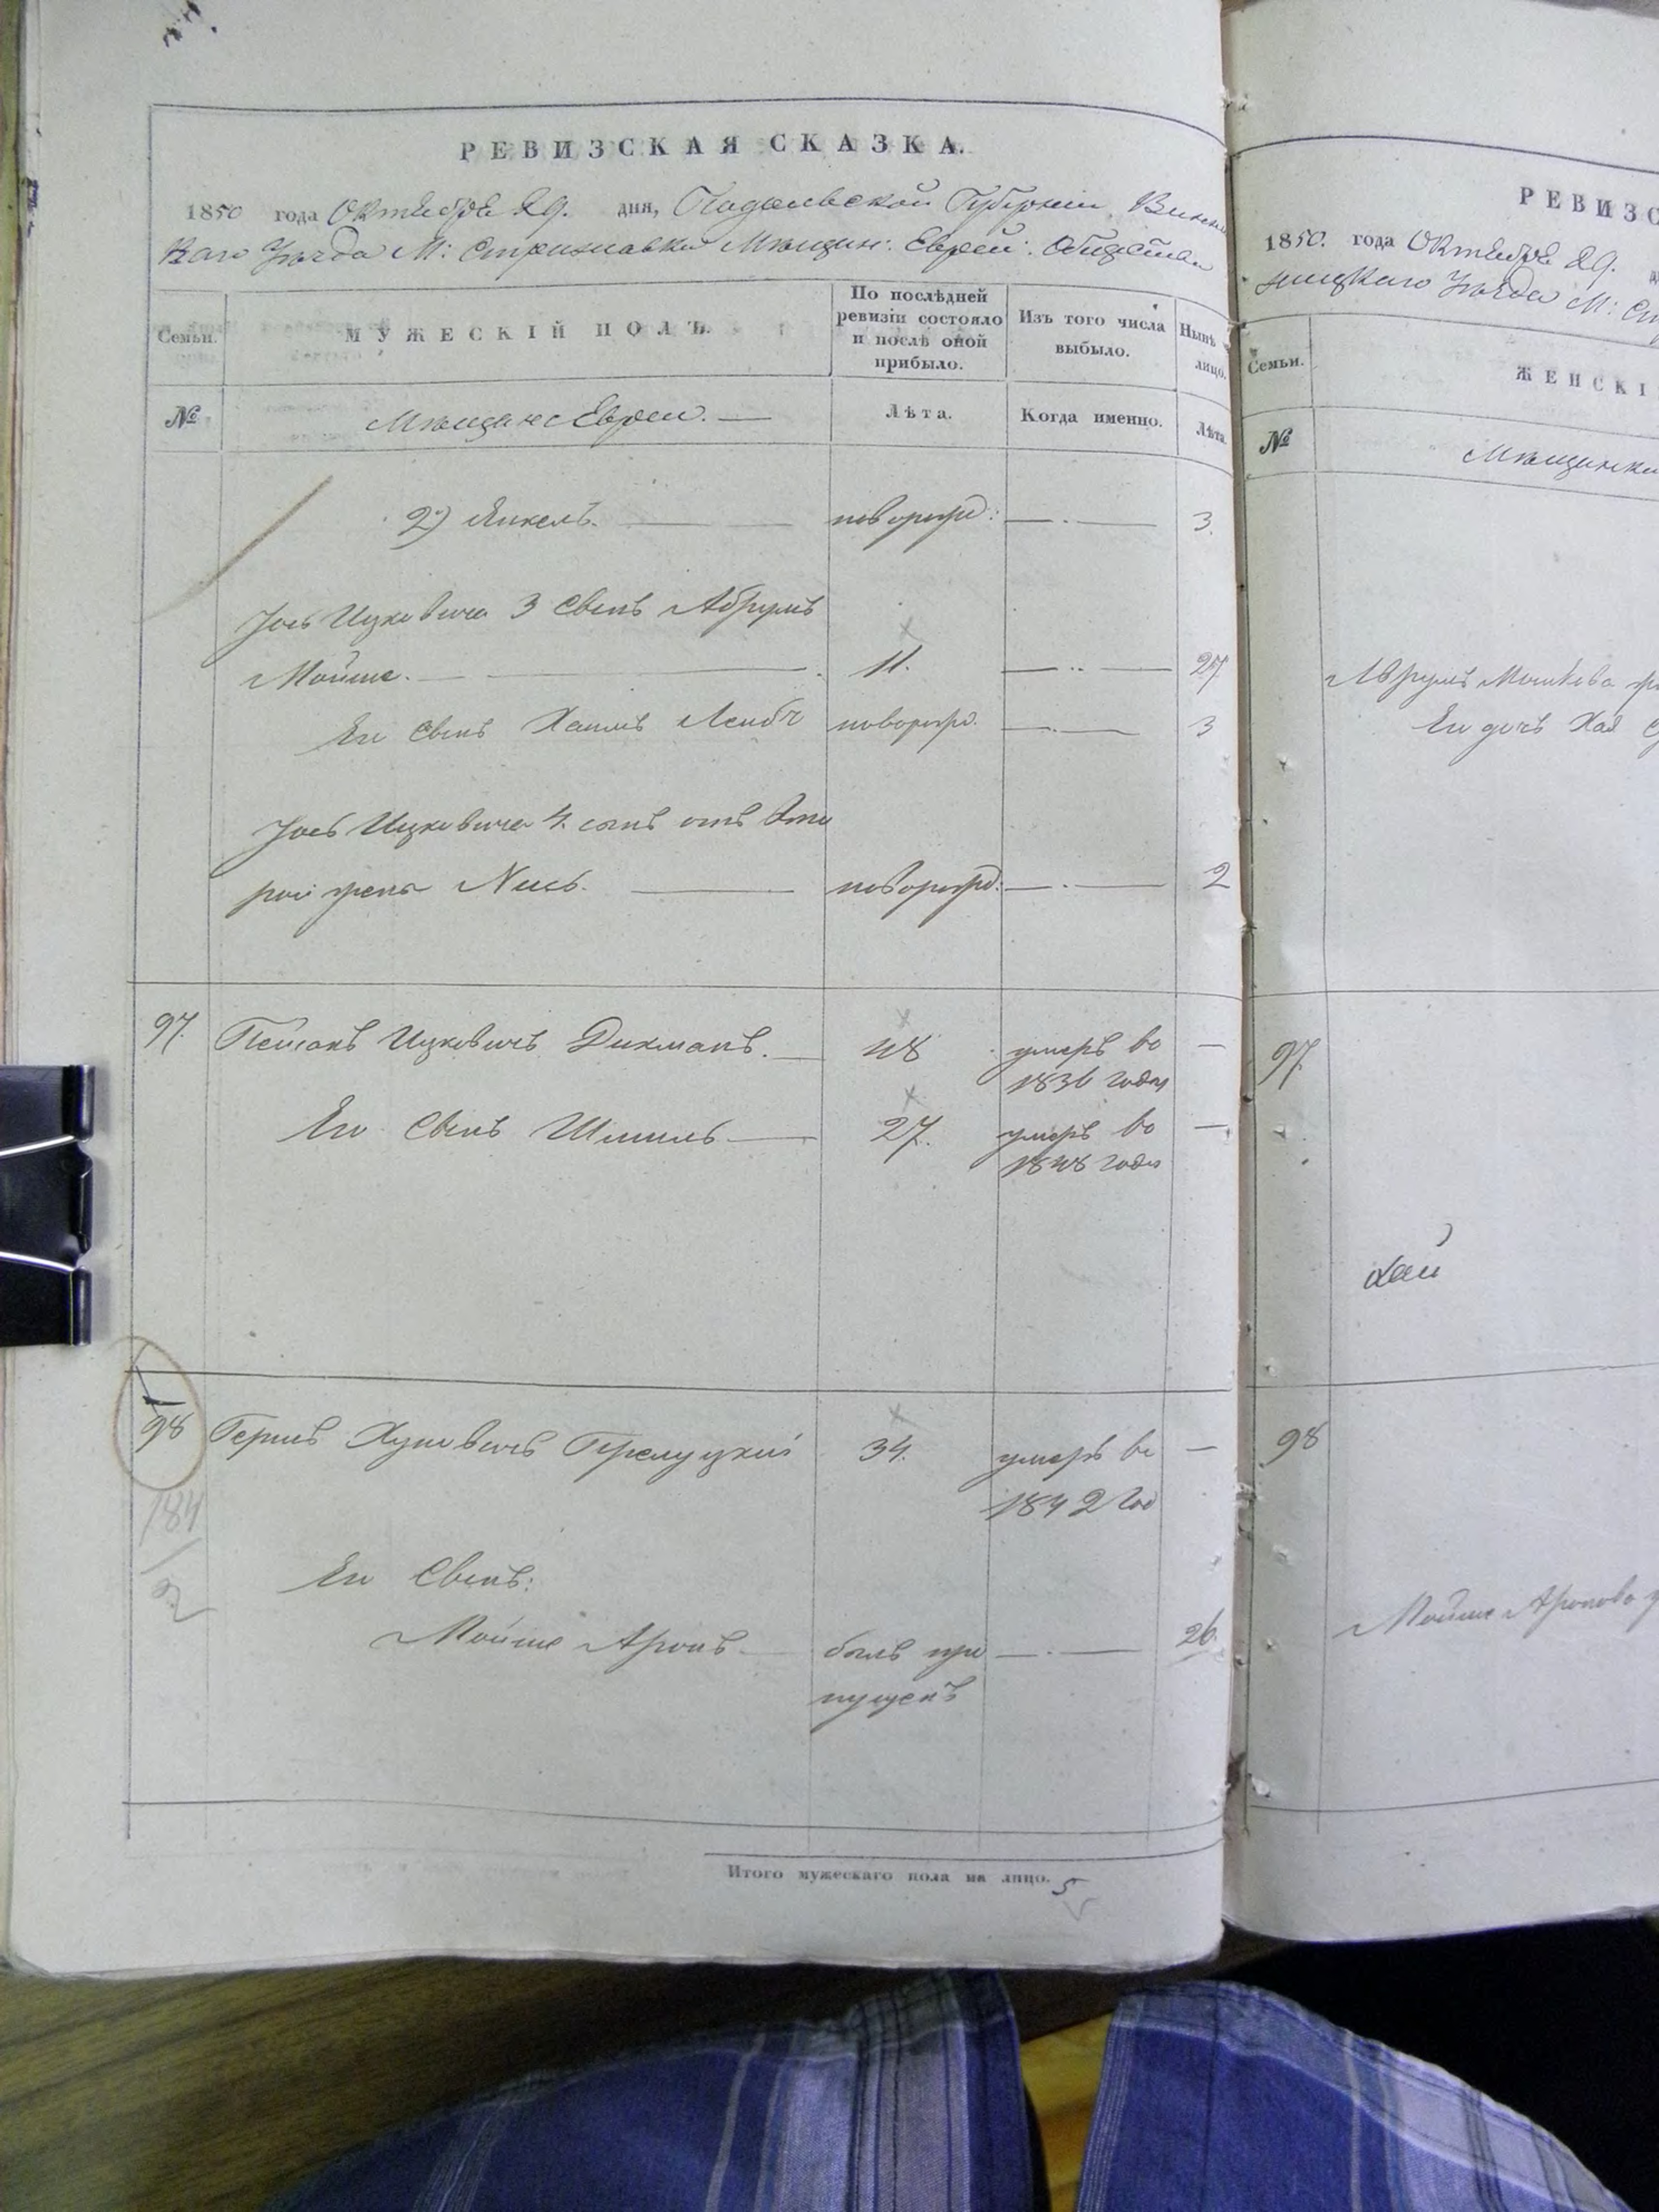 РЕВИЗСКАЯ СКАЗКА.
1850 года Октября 29. дня, Подольской Губернии, Винни
каго Уѣзда М: Стрижавки Мѣщан: Еврей: Общества
Семьи.
МУЖЕСКІЙ ПОЛЪ.
По послѣдней
ревизіи состояло
и послѣ оной
прибыло.
Изъ того числа
выбыло.
Нынѣ
лицо.
№
Мѣщане Евреи.
Лѣта.
Когда именно.
Лѣта.
2) Янкель. новорожд: 3.
Іось Ицковича 3 Сынъ Абрумъ
Мойше. 11. 27
Его Сынъ Хаимъ Лейбъ новорожд. 3
Іось Ицковича 4. сынъ отъ вто
рой жены Нись. новорожд: 2
97. Ицковичъ Дикманъ. 48 умеръ во —
1836 годы
Его Сынъ Шмиль 27. умеръ во —
1848 годы
98 Гершъ 34. умеръ во —
1842 год
184
2
Его Сынъ:
Мойше Аронъ былъ про 26.
пущенъ
Итого мужескаго пола на лицо. 5
РЕВИЗС
1850. года Октября 29.
ницкаго Уѣзда М: Ст
Семьи.
ЖЕНСКІ
№
Мѣщанки
Абрумъ Мошкова
Его дочь Хая
97.
98
Мойше Аронова